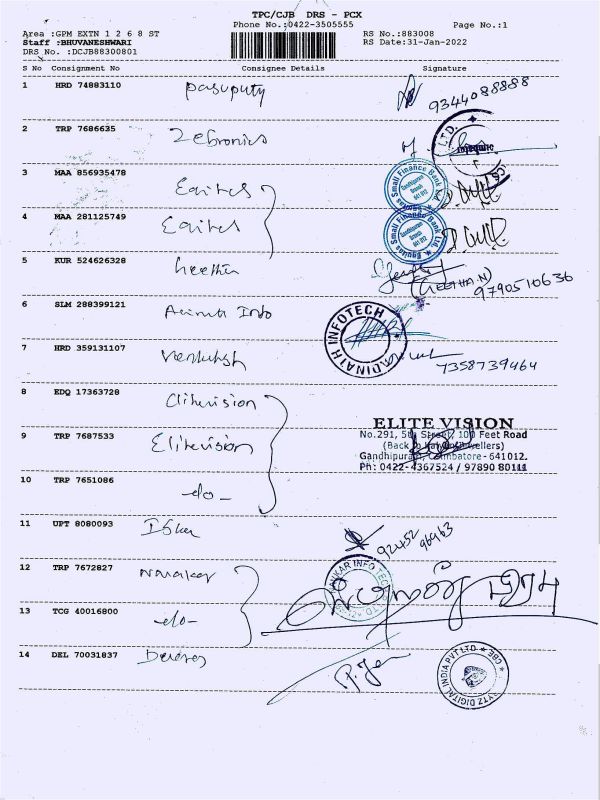 TPC/CJB DRS - PCX
Phone No.:0422-3505555
Page No.:1
Area :GPM EXTN 1 2 6 8 ST
RS No.:883008
Staff :BHUVANESHWARI
RS Date:31-Jan-2022
DRS No. :DCJB88300801
S No Consignment No Consignee Details Signature
1 HRD 74883110 pasuputy
9344088888
2 TRP 7686635 Zebronics
LTD.
3 MAA 856935478 Equitas
Equitas Small Finance Bank Ltd.
Gandhipuram
Branch
641 012
4 MAA 281125749 Equitas
Equitas Small Finance Bank Ltd.
Gandhipuram
Branch
641 012
5 KUR 524626328 heethu
9790510636
6 SLM 288399121 Info
ADINATH INFOTECH
7 HRD 359131107 Venkatesh
7358739464
8 EDQ 17363728 Elitevision
ELITE VISION
9 TRP 7687533 Elitevision
No.291, 5th Street, 100 Feet Road
Gandhipuram, Coimbatore - 641012.
Ph: 0422-4367524 / 97890 80111
10 TRP 7651086 -do-
11 UPT 8080093
92452 96963
12 TRP 7672827
INFO TECH
13 TCG 40016800 -do-
14 DEL 70031837
DIGITAL INDIA PVT LTD ★ CBE ★